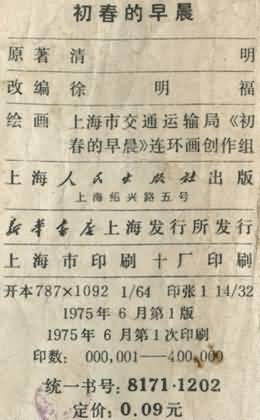 初春的早晨
原著 清 明
改编 徐 明 福
绘画 上海市交通运输局《初
春的早晨》连环画创作组
上海人民出版社出版
上海绍兴路五号
新华书店上海发行所发行
上海市印刷十厂印刷
开本787×1092 1/64 印张1 14/32
1975年6月第1版
1975年6月第1次印刷
印数: 000,001—400,000
统一书号: 8171·1202
定价: 0.09元